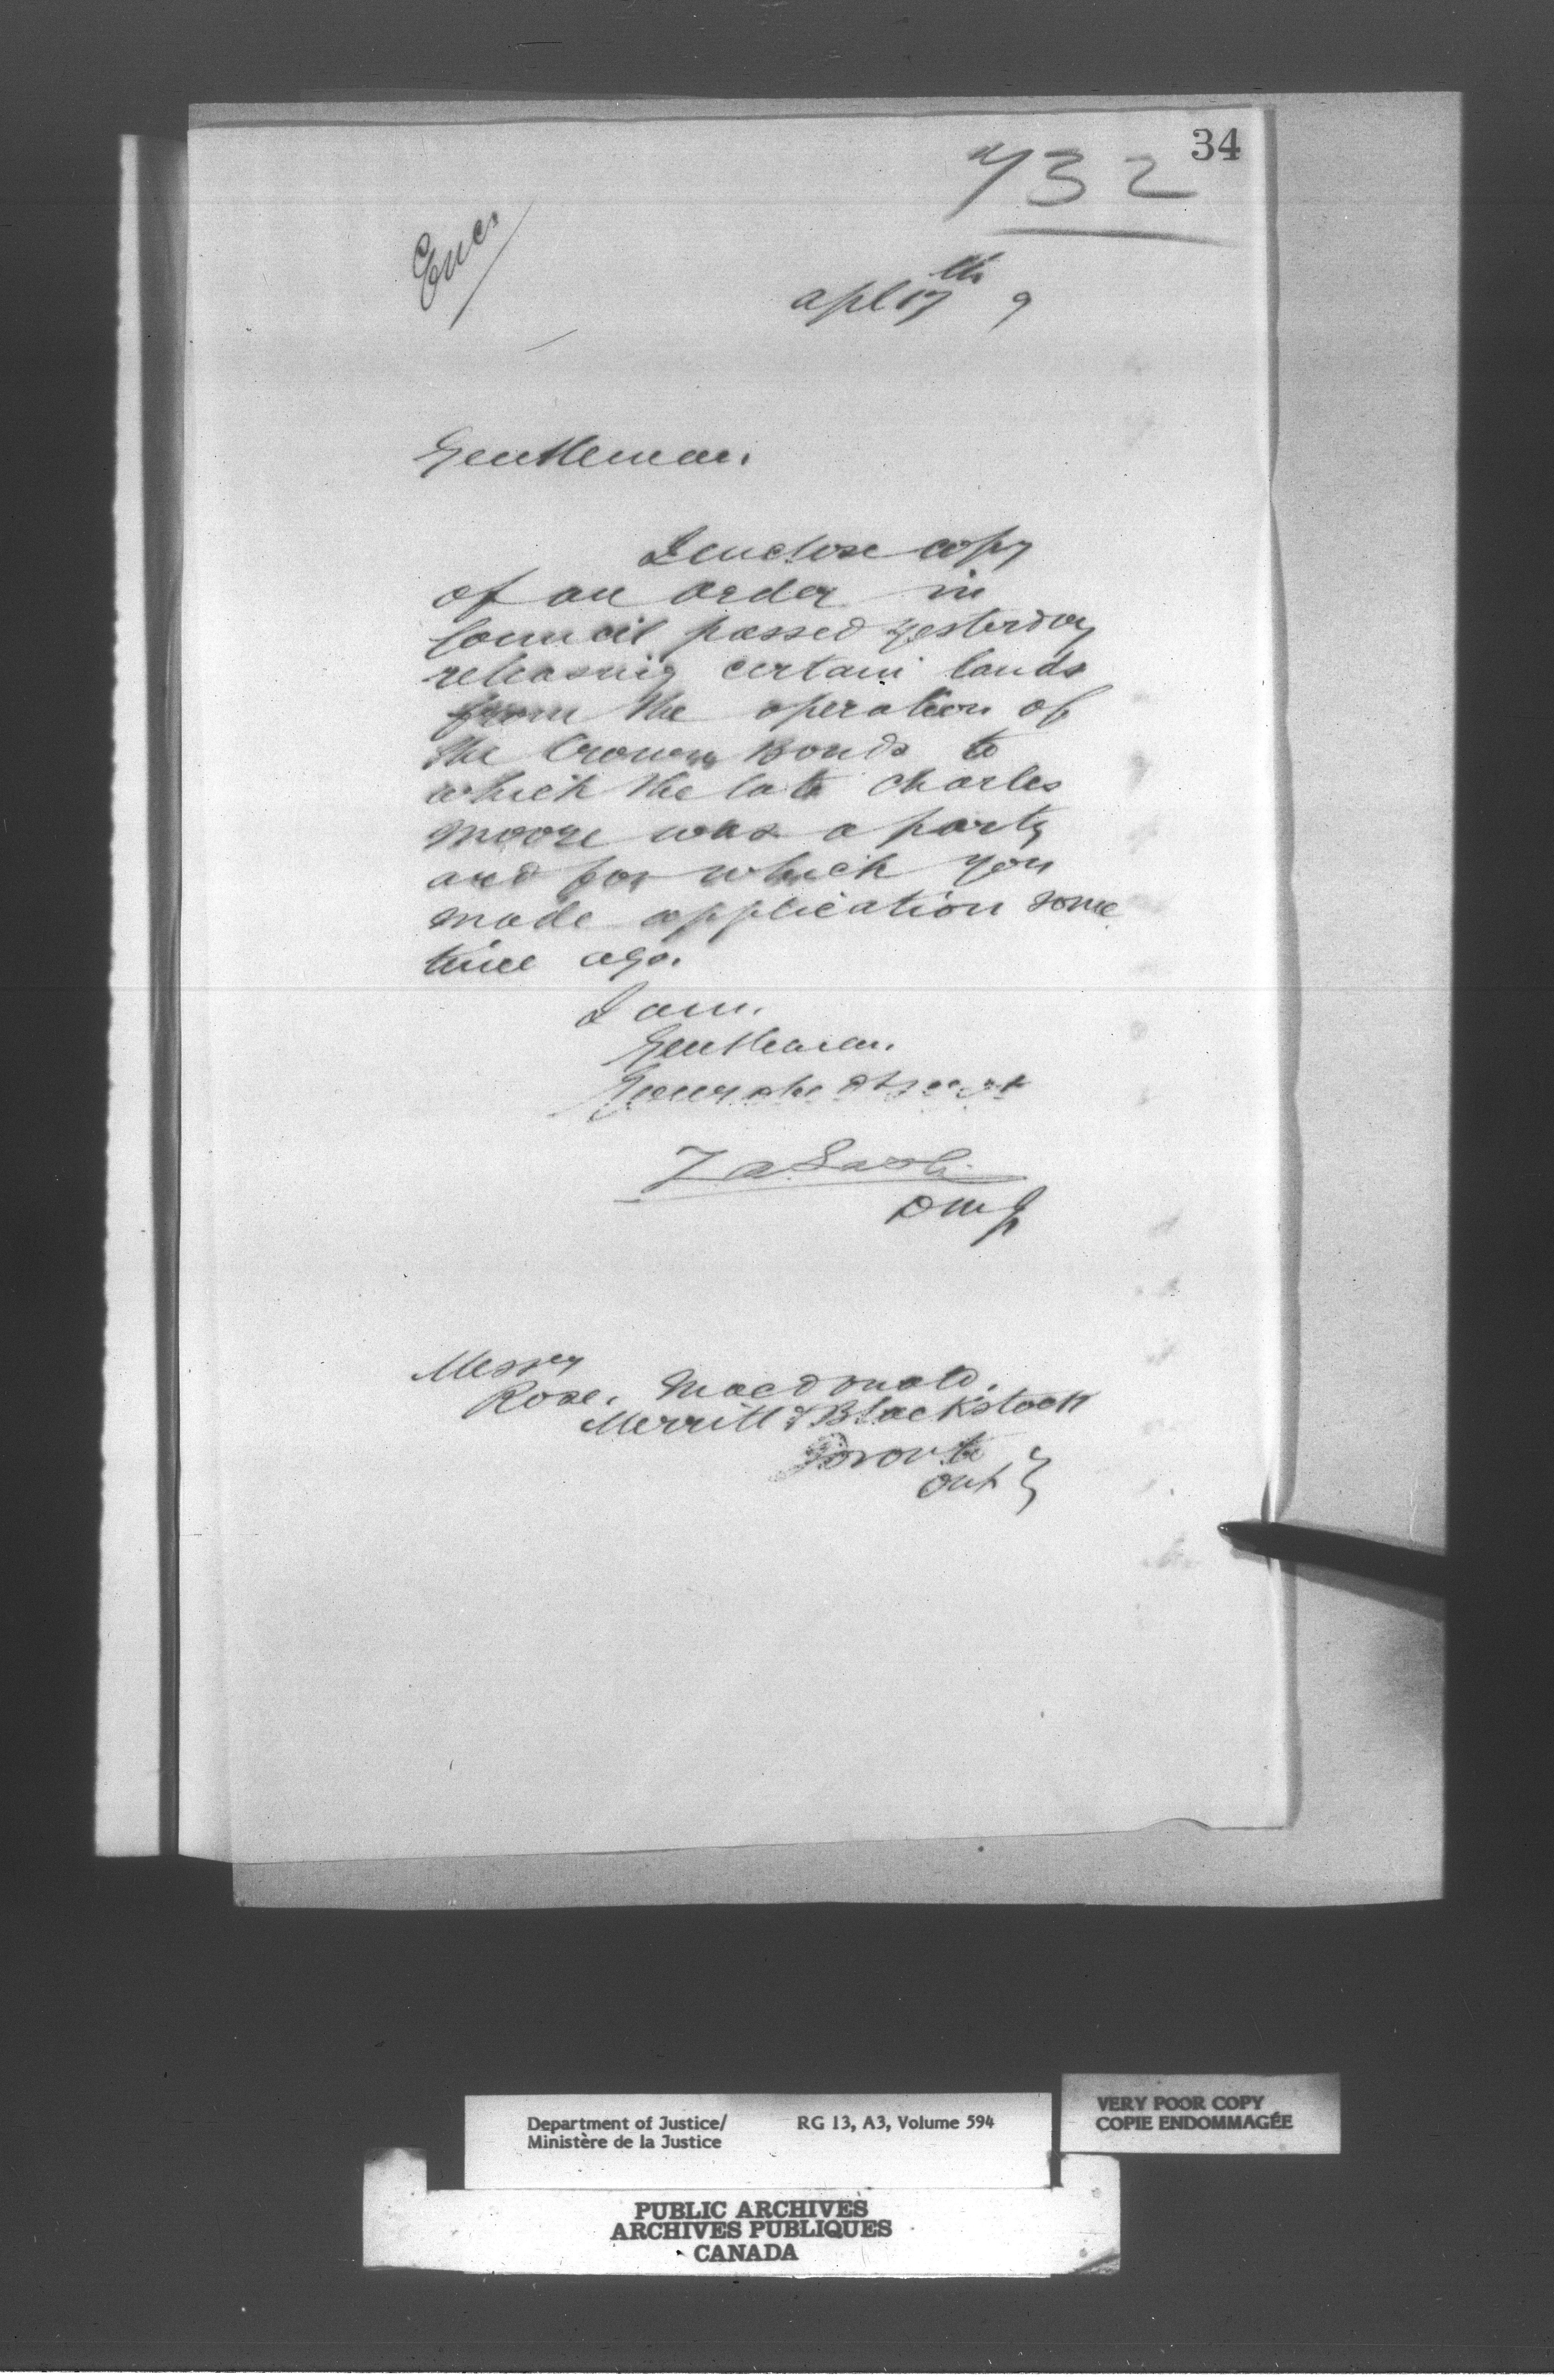 34
732
Encs
Apl 17th 9
Gentlemen.
I enclose copy
of an order in
Council passed yesterday
releasing certain lands
from the operation of
the Crown Bonds to
which the late Charles
Moore was a party
and for which you
made application some
time ago.
I am.
Gentlemen.
Your obt Servt
Z A Lash
DMJ
Messrs
Rose, Macdonald,
Merritt & Blackstock
Toronto
Ont
Department of Justice/ RG 13, A3, Volume 594
Ministère de la Justice
VERY POOR COPY
COPIE ENDOMMAGÉE
PUBLIC ARCHIVES
ARCHIVES PUBLIQUES
CANADA